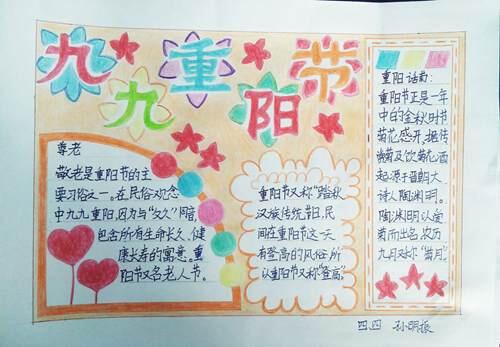 九九重阳节
尊老
敬老是重阳节的主
要习俗之一。在民俗观念
中九九重阳,因为与"久久"同音,
包含所有生命长久、健
康长寿的寓意。重
阳节又名老人节。
重阳节又称"踏秋"
汉族传统节日,民
间在重阳节这一天
有登高的风俗,所
以重阳节又称"登高"。
重阳诗句:
重阳节正是一年
中的金秋时节
菊花盛开,据传
赏菊及饮菊花酒
起源于晋朝大
诗人陶渊明。
陶渊明以爱
菊而出名,农历
九月又称"菊月"。
四、四 孙明振